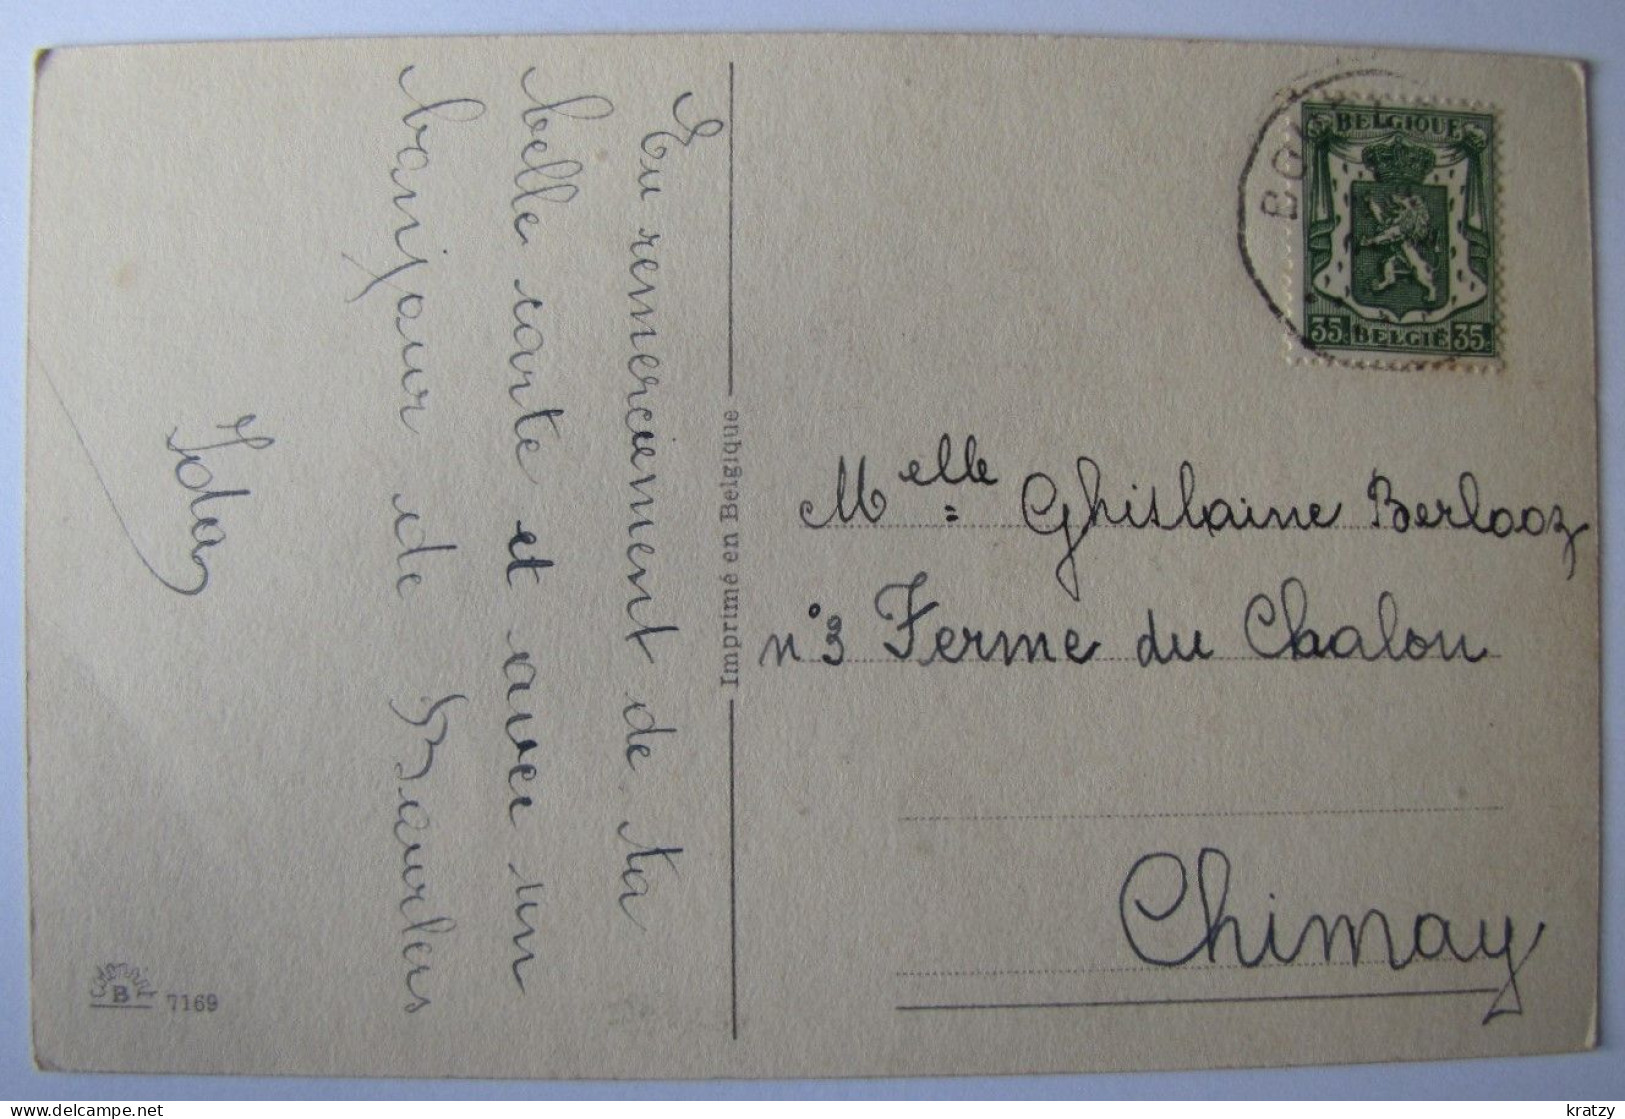 En remerciement de ta
belle carte et avec un
bonjour de Bourlers
Ida
Imprimé en Belgique
B
7169
BELGIQUE
35c BELGIË 35c
Melle Ghislaine Berlooz
n°3 Ferme du Chalon
Chimay
delcampe.net
kratzy